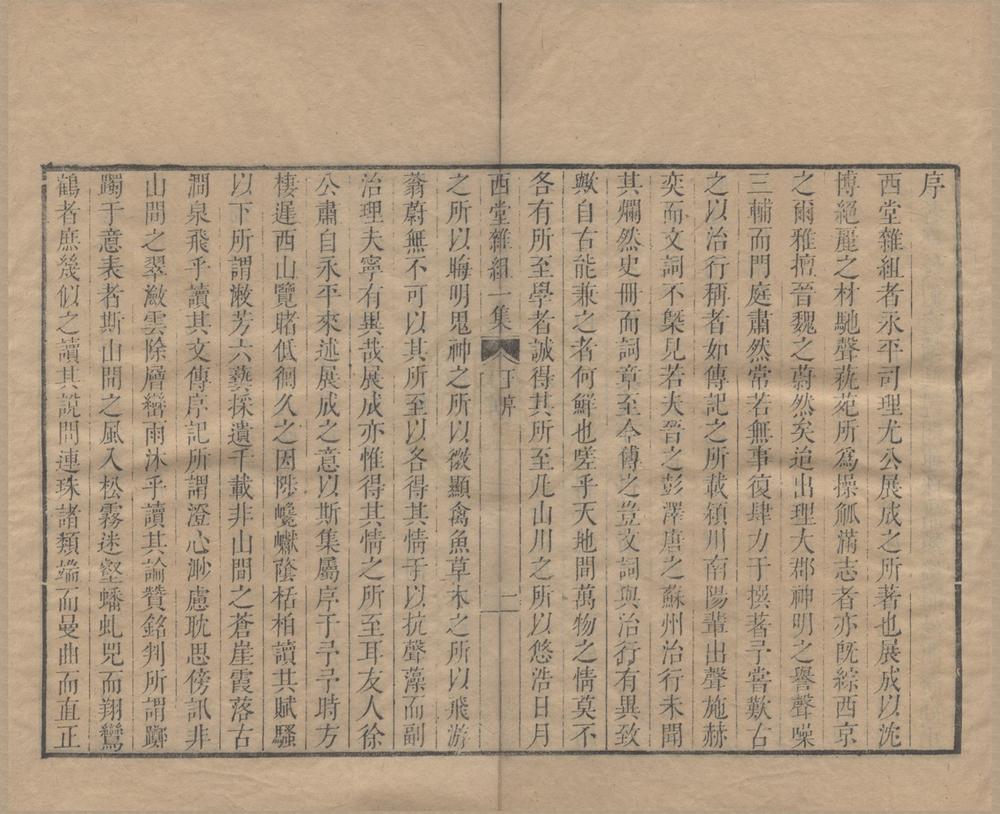 序
西堂雜組者永平司理尤公展成之所著也展成以沈
博絕麗之材馳聲蓺苑所爲操觚滿志者亦旣綜西京
之爾雅擅晉魏之蔚然矣迨出理大郡神明之譽聲噪
三輔而門庭肅然常若無事復肆力于撰著予嘗歎古
之以治行稱者如傳記之所載潁川南陽輩出聲施赫
奕而文詞不槩見若夫晉之彭澤唐之蘇州治行未聞
其爛然史冊而詞章至今傳之豈文詞與治行有異致
歟自古能兼之者何鮮也嗟乎天地間萬物之情莫不
各有所至學者誠得其所至凡山川之所以悠浩日月
西堂雜組一集 序 二
之所以晦明鬼神之所以微顯禽魚草木之所以飛游
蓊蔚無不可以其所至以各得其情于以抗聲藻而副
治理夫寧有異哉展成亦惟得其情之所至耳友人徐
公肅自永平來述展成之意以斯集屬序于予予時方
棲遲西山覽睹低徊久之因陟巉巘蔭栝柏讀其賦騷
以下所謂漱芳六藝採遺千載非山間之蒼崖霞落古
澗泉飛乎讀其文傳序記所謂澄心渺慮耽思傍訊非
山間之翠澂雲除層巒雨沐乎讀其論贊銘判所謂躑
躅于意表者斯山間之風入松霧迷壑蟠虬咒而翔鸞
鶴者庶幾似之讀其說問連珠諸類端而曼曲而直正